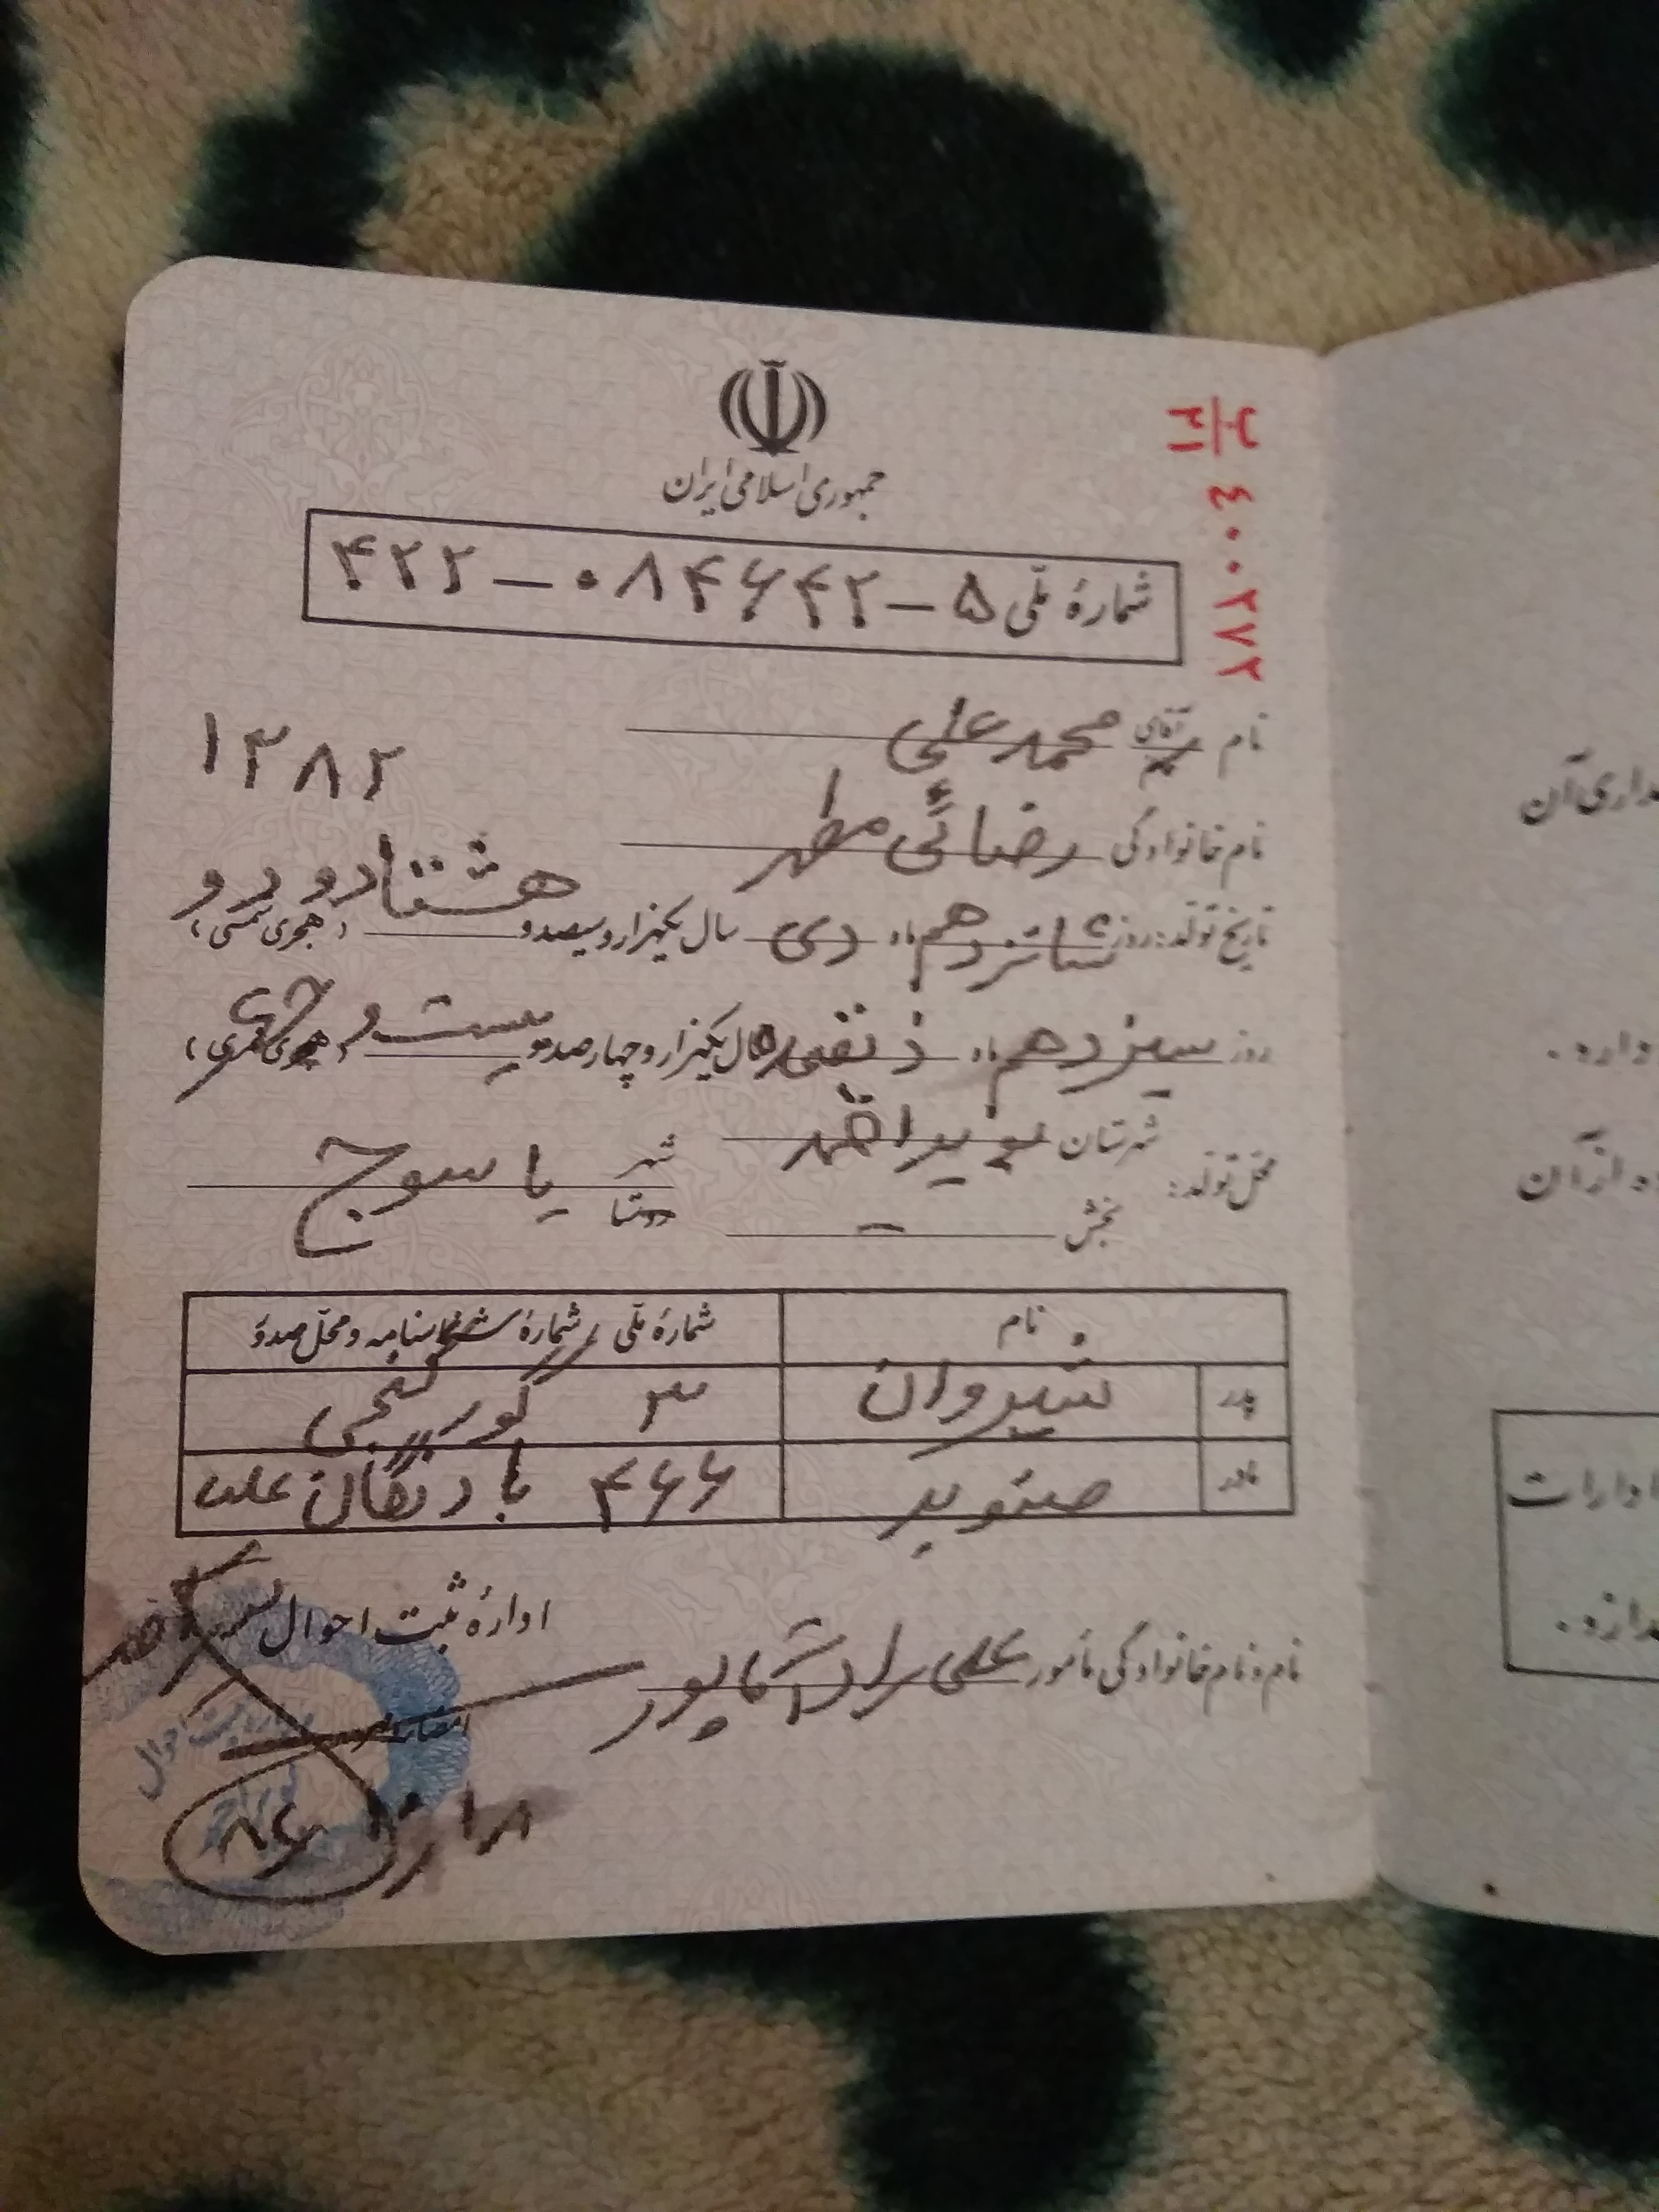 جمهوری اسلامی ایران
شمارهٔ ملّی ۵ – ۰۸۴۶۴۲ – ۴۲۲
۴۰۰۲۷۲
نام آقای محمد علی
۱۳۸۲
نام خانوادگی رضائی مطهر
تاریخ تولد: روز شانزدهم ماه دی سال یکهزار و سیصد و هشتاد و دو (هجری شمسی)
روز سیزدهم ماه ذیقعده سال یکهزار و چهارصد و بیست و چهار (هجری قمری)
محل تولد: شهرستان بویراحمد شهر روستا یاسوج
بخش –
نام شمارهٔ ملّی / شمارهٔ شناسنامه و محل صدور
پدر شیروان ۳ گورکنجی
مادر صنوبر ۴۶۶ بادنگان علیا
ادارهٔ ثبت احوال
نام و نام خانوادگی مأمور علی رادشاپور
۸۶
داری آن
واره .
ه از آن
ادارات
دازه .